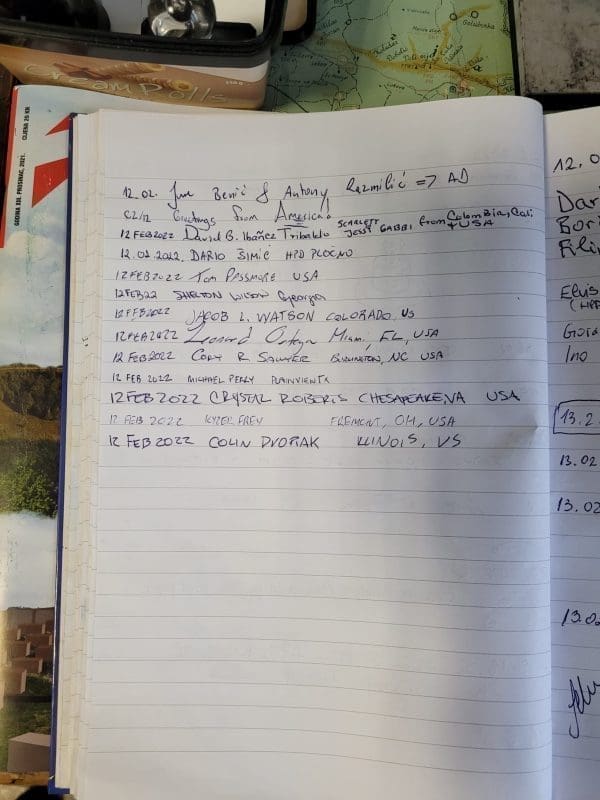 Cream Rolls
GODINA XIII. PROSINAC, 2021.
CIJENA 25 KN
12.02. Jure Benić & Antony Razmilić => AD
02/12 Greetings from America!
12 FEB 2022 David B. Ibáñez Tribaldo SCARLETT JESSY GABBI from Colombia, Cali + USA
12.02.2022. DARIO ŠIMIĆ HPD PLOČNO
12 FEB 2022 TOM PASSMORE USA
12 FEB 22 SHELTON WILSON Georgia
12 FEB 2022 JACOB L. WATSON COLORADO, US
12 FEB 2022 Leonard Miami, FL, USA
12 FEB 2022 CORY R SAWYER BURLINGTON, NC USA
12 FEB 2022 MICHAEL PERRY
12 FEB 2022 CRYSTAL ROBERTS CHESAPEAKE VA USA
12 FEB 2022 KYZER FREY FREMONT, OH, USA
12 FEB 2022 COLIN DVORAK ILLINOIS, US
12.0
Dar
Bori
Filip
Elvis
(HPD
Gora
Ino
13.2
13.02
13.02
13.02